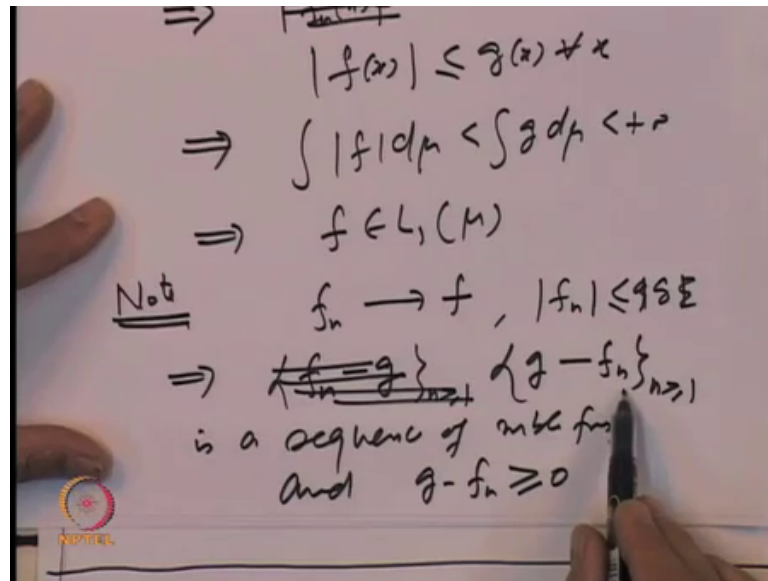 ⇒
|f(x)| ≤ g(x) ∀ x
⇒ ∫ |f| dμ < ∫ g dμ < +
⇒ f ∈ L₁(μ)
Note fₙ → f , |fₙ| ≤ g
⇒ {fₙ - g}ₙ≥₁ {g - fₙ}ₙ≥₁
is a sequence of mble
and g - fₙ ≥ 0
NPTEL